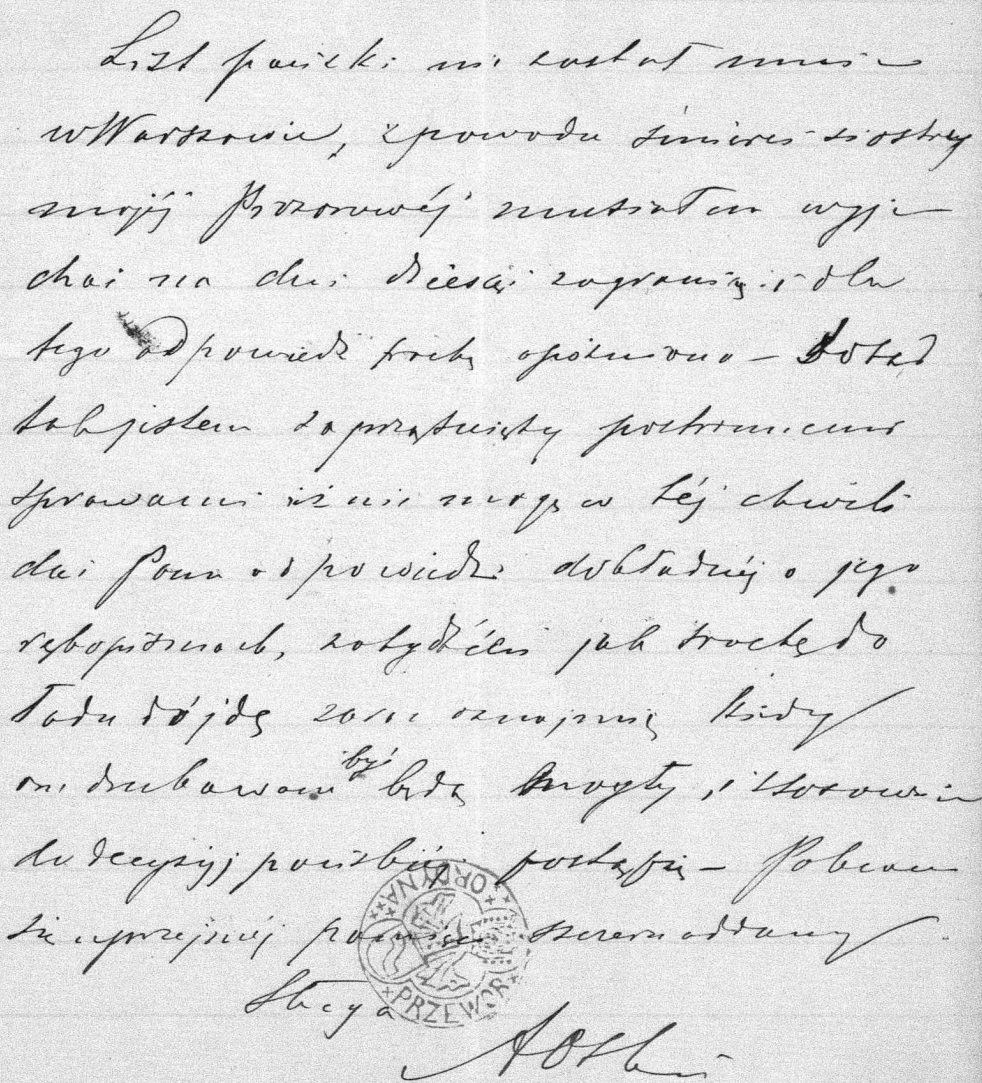 List pański nie zastał mnie
w Warszawie, z powodu śmierci siostry
mojéj Prozorowéj musiałem wyje
chać na dni dziesięć zagranicę i dla
tego odpowiedź trochę opóźniona – Dotąd
tak jestem zaprzątnięty postronnemi
sprawami iż nie mogę w téj chwili
dać Panu odpowiedzi dokładnéj o jego
rękopismach, lecz jak trochę do
ładu dójdę zaraz oznajmię kiedy
one drukowane być będą mogły, i stosownie
do decyzyj pańskiéj postąpię – Polecam
się uprzejmej pamięci szczerze oddany
Sługa
PRZEWOR ORDYNA